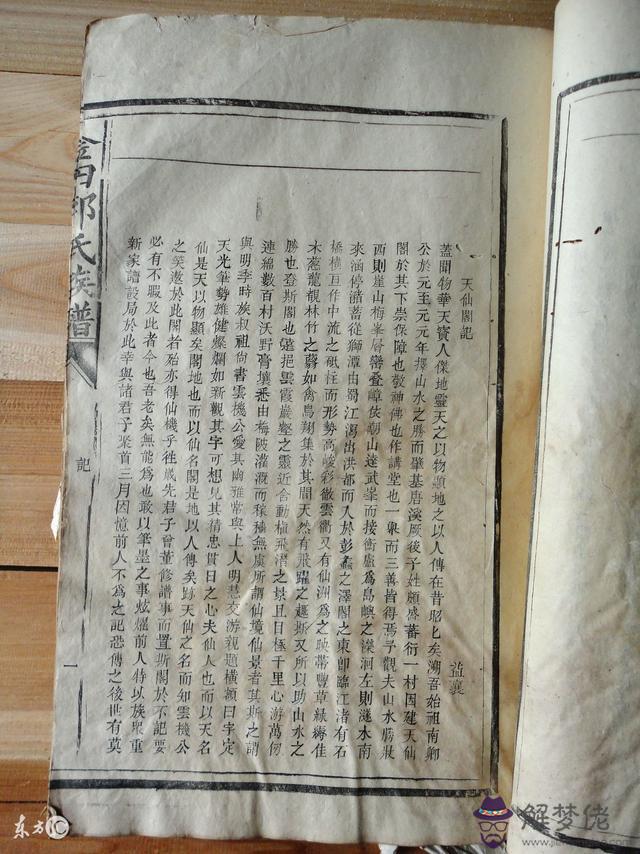 天仙閣記 益襄
蓋聞物華天寶人傑地靈天之以物顯地之以人傳在昔昭昭矣溯吾始祖南卿
公於元至元元年擇山水之勝而肇基唐溪厥後子姓頗盛蕃衍一村因建天仙
閣於其下崇保障也敬神佛也作講堂也一舉而三善皆得焉予觀夫山水勝狀
西則崖山梅峯層巒叠嶂倐朝山達武峯而接衡廬為島嶼之濚洄左則濊水南
來涵停瀦蓄從獅潭由蜀江瀉出洪都而入於彭蠡之澤閣之東卽臨江渚有石
橋橫亙作中流之砥柱而形勢高峻彩徹雲衢又有仙洲為之映帶豐草綠縟佳
木葱蘢覩林竹之蓊如禽鳥翔集於其間天然有飛躍之趣斯又所以助山水之
勝也登斯閣也遠挹雲霞巖壑之靈近含動植飛潛之景且目極千里心游萬仞
連綿數百村沃野膏壤悉由梅陂灌溉而稼穡無虞所謂仙境仙景者其斯之謂
與明季時族叔祖尚書雲機公愛其幽雅常與上人明慧交游親題橫額曰字定
天光筆勢雄健燦爛如新觀其字可想見其精忠貫日之心夫仙人也而以天名
仙是天以物顯矣閣地也而以仙名閣是地以人傳矣跡天仙之名而知雲機公
之笑遨於此閣者殆亦得仙機乎徃歲先君子曾董修譜事而置斯閣於不記要
必有不暇及此者今也吾老矣無能為也敢以筆墨之事炫燿前人特以族衆重
新家譜設局於此幸與諸君子聚首三月因憶前人不為之記恐傳之後世有莫
邱氏族譜
記
一
东方IC
解梦佬
www.jiemenglao.com